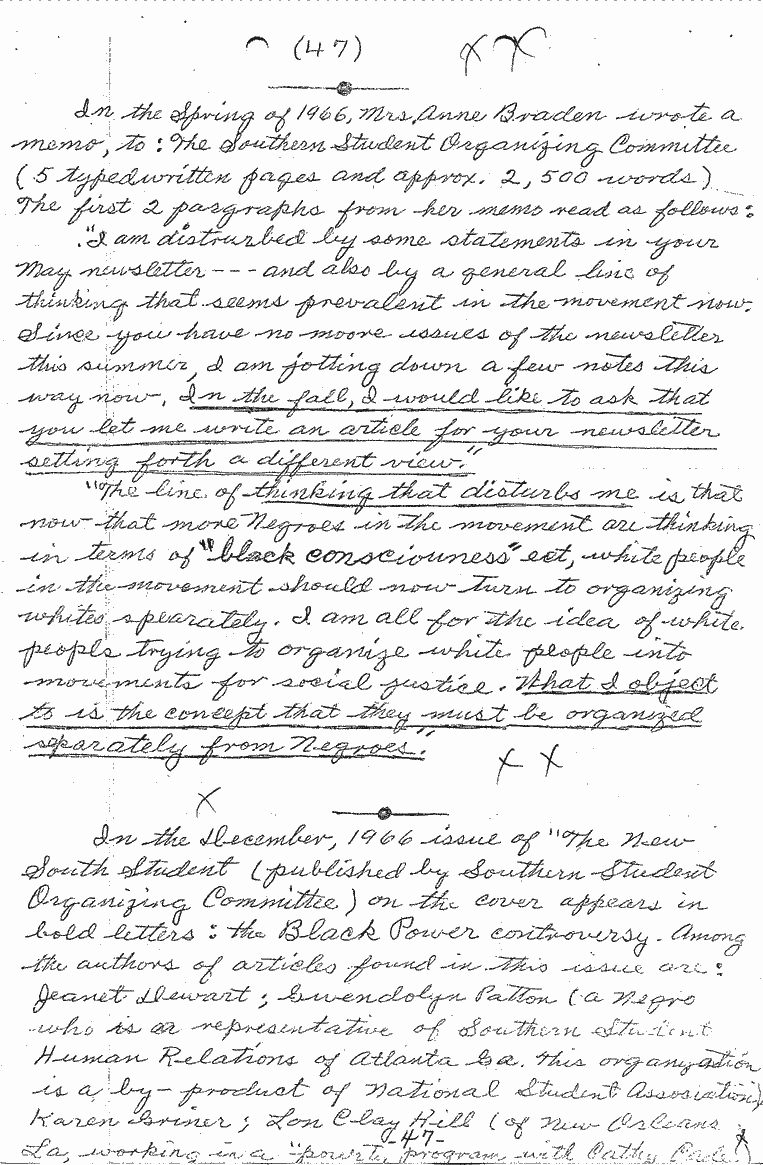 (47) X X
In the Spring of 1966, Mrs. Anne Braden wrote a
memo, to: The Southern Student Organizing Committee
(5 typedwritten pages and approx. 2,500 words)
The first 2 pasgraphs from her memo read as follows:
"I am distrurbed by some statements in your
May newsletter --- and also by a general line of
thinking that seems prevalent in the movement now.
Since you have no moore issues of the newsletter
this summer, I am jotting down a few notes this
way now. In the fall, I would like to ask that
you let me write an article for your newsletter
setting forth a different view."
"The line of thinking that disturbs me is that
now that more Negroes in the movement are thinking
in terms of "black consciouness" ect, white people
in the movement should now turn to organizing
whites spearately. I am all for the idea of white
people trying to organize white people into
movements for social justice. What I object
to is the concept that they must be organized
separately from Negroes."
X X
X
In the December, 1966 issue of "The New
South Student (published by Southern Student
Organizing Committee) on the cover appears in
bold letters: the Black Power controversy. Among
the authors of articles found in this issue are:
Jeanet Dewart; Gwendolyn Patton (a Negro
who is a representative of Southern Student
Human Relations of Atlanta Ga. This organization
is a by-product of National Student Association);
Karen Griner; Lon Clay Hill (of New Orleans
La, working in a program with Cathy Cade)
-47-
X